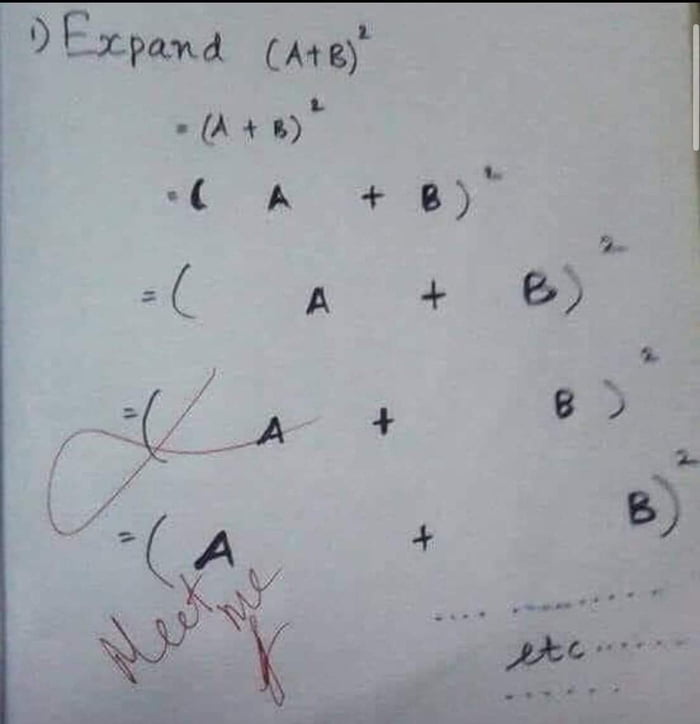 1) Expand (A+B)²
= (A + B)²
= ( A + B)²
= ( A + B)²
= ( A + B )²
= ( A + B)²
Meet me
.... ............
etc ......
.......